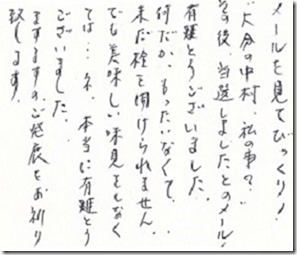 メールを見てびっくり!
"大分の中村、私の事?"
その後、当選しましたとのメール!
有難とうございました。
何だか、もったいなくて、
未だ栓を開けられません。
でも美味しい味見をしなく
ては…ネ。本当に有難とう
ございました。
ますますのご発展をお祈り
致します。